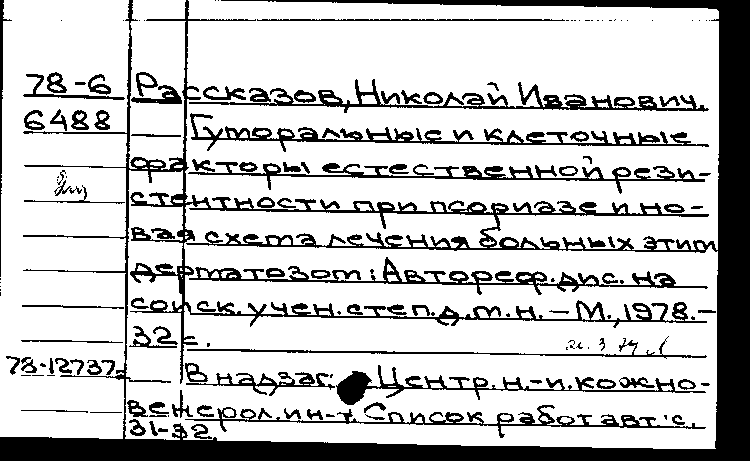 78-6 Рассказов, Николай Иванович.
6488 Гуторальные и клеточные
факторы естественной рези-
стентности при псориазе и но-
вая схема лечения больных этим
дерматозом: Автореф. дис. на
соиск. учен. степ. д.м.н. – М., 1978. –
32 с.
78-12737а В надзаг: Центр. н.-и. кожно-
венерол. ин-т. Список работ авт.: с.
31-32.